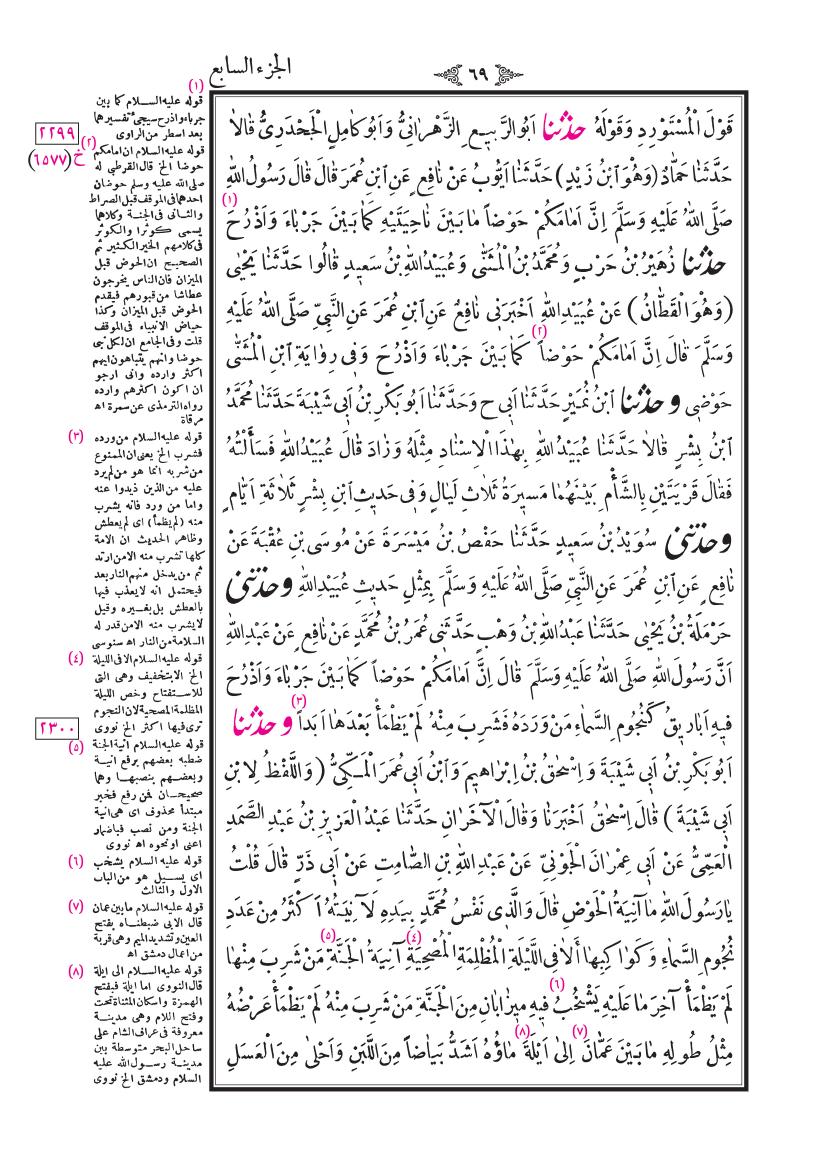 الجزء السابع
٦٩
قَوْلَ الْمُسْتَوْرِدِ وَقَوْلَهُ حدثنا اَبُو الرَّبِيعِ الزَّهْرَانِيُّ وَاَبُو كَامِلٍ الْجَحْدَرِيُّ قَالاَ
حَدَّثَنَا حَمَّادٌ (وَهُوَ ابْنُ زَيْدٍ) حَدَّثَنَا اَيُّوبُ عَنْ نَافِعٍ عَنِ ابْنِ عُمَرَ قَالَ قَالَ رَسُولُ اللهِ
صَلَّى اللهُ عَلَيْهِ وَسَلَّمَ اِنَّ اَمَامَكُمْ حَوْضاً مَا بَيْنَ نَاحِيَتَيْهِ كَمَا بَيْنَ جَرْبَاءَ وَاَذْرُحَ (١)
حدثنا زُهَيْرُ بْنُ حَرْبٍ وَمُحَمَّدُ بْنُ الْمُثَنَّى وَعُبَيْدُ اللهِ بْنُ سَعِيدٍ قَالُوا حَدَّثَنَا يَحْيَى
(وَهُوَ الْقَطَّانُ) عَنْ عُبَيْدِ اللهِ اَخْبَرَنِى نَافِعٌ عَنِ ابْنِ عُمَرَ عَنِ النَّبِيِّ صَلَّى اللهُ عَلَيْهِ
وَسَلَّمَ قَالَ اِنَّ اَمَامَكُمْ حَوْضاً (٢) كَمَا بَيْنَ جَرْبَاءَ وَاَذْرُحَ وَفِى رِوَايَةِ ابْنِ الْمُثَنَّى
حَوْضِى وحدثنا ابْنُ نُمَيْرٍ حَدَّثَنَا اَبِى ح وَحَدَّثَنَا اَبُو بَكْرِ بْنُ اَبِى شَيْبَةَ حَدَّثَنَا مُحَمَّدُ
ابْنُ بِشْرٍ قَالاَ حَدَّثَنَا عُبَيْدُ اللهِ بِهٰذَا الْاِسْنَادِ مِثْلَهُ وَزَادَ قَالَ عُبَيْدُ اللهِ فَسَأَلْتُهُ
فَقَالَ قَرْيَتَيْنِ بِالشَّأْمِ بَيْنَهُمَا مَسِيرَةُ ثَلاَثِ لَيَالٍ وَفِى حَدِيثِ ابْنِ بِشْرٍ ثَلاَثَةِ اَيَّامٍ
وحدثنى سُوَيْدُ بْنُ سَعِيدٍ حَدَّثَنَا حَفْصُ بْنُ مَيْسَرَةَ عَنْ مُوسَى بْنِ عُقْبَةَ عَنْ
نَافِعٍ عَنِ ابْنِ عُمَرَ عَنِ النَّبِيِّ صَلَّى اللهُ عَلَيْهِ وَسَلَّمَ بِمِثْلِ حَدِيثِ عُبَيْدِ اللهِ وحدثنى
حَرْمَلَةُ بْنُ يَحْيَى حَدَّثَنَا عَبْدُ اللهِ بْنُ وَهْبٍ حَدَّثَنِى عُمَرُ بْنُ مُحَمَّدٍ عَنْ نَافِعٍ عَنْ عَبْدِ اللهِ
اَنَّ رَسُولَ اللهِ صَلَّى اللهُ عَلَيْهِ وَسَلَّمَ قَالَ اِنَّ اَمَامَكُمْ حَوْضاً كَمَا بَيْنَ جَرْبَاءَ وَاَذْرُحَ
فِيهِ اَبَارِيقُ كَنُجُومِ السَّمَاءِ مَنْ وَرَدَهُ فَشَرِبَ مِنْهُ لَمْ يَظْمَأْ بَعْدَهَا اَبَداً (٣) وحدثنا
اَبُو بَكْرِ بْنُ اَبِى شَيْبَةَ وَاِسْحٰقُ بْنُ اِبْرَاهِيمَ وَابْنُ اَبِى عُمَرَ الْمَكِّىُّ (وَاللَّفْظُ لِابْنِ
اَبِى شَيْبَةَ) قَالَ اِسْحٰقُ اَخْبَرَنَا وَقَالَ الْآخَرَانِ حَدَّثَنَا عَبْدُ الْعَزِيزِ بْنُ عَبْدِ الصَّمَدِ
الْعَمِّىُّ عَنْ اَبِى عِمْرَانَ الْجَوْنِىِّ عَنْ عَبْدِ اللهِ بْنِ الصَّامِتِ عَنْ اَبِى ذَرٍّ قَالَ قُلْتُ
يَا رَسُولَ اللهِ مَا آنِيَةُ الْحَوْضِ قَالَ وَالَّذِى نَفْسُ مُحَمَّدٍ بِيَدِهِ لَآنِيَتُهُ اَكْثَرُ مِنْ عَدَدِ
نُجُومِ السَّمَاءِ وَكَوَاكِبِهَا اَلاَ فِى اللَّيْلَةِ الْمُظْلِمَةِ الْمُصْحِيَةِ (٤) آنِيَةُ الْجَنَّةِ (٥) مَنْ شَرِبَ مِنْهَا
لَمْ يَظْمَأْ آخِرَ مَا عَلَيْهِ يَشْخُبُ (٦) فِيهِ مِيزَابَانِ مِنَ الْجَنَّةِ مَنْ شَرِبَ مِنْهُ لَمْ يَظْمَأْ عَرْضُهُ
مِثْلُ طُولِهِ مَا بَيْنَ عَمَّانَ (٧) اِلَى اَيْلَةَ (٨) مَاؤُهُ اَشَدُّ بَيَاضاً مِنَ اللَّبَنِ وَاَحْلَى مِنَ الْعَسَلِ
(١)
قوله عليه السلام كما بين
جرباء واذرح سيجىء تفسيرهما
بعد اسطر من الراوى
٢٢٩٩
خ (٦٥٧٧)
(٢)
قوله عليه السلام ان امامكم
حوضا الخ قال القرطبى له
صلى الله عليه وسلم حوضان
احدهما فى الموقف قبل الصراط
والثانى فى الجنة وكلاهما
يسمى كوثرا والكوثر
فى كلامهم الخير الكثير ثم
الصحيح ان الحوض قبل
الميزان فان الناس يخرجون
عطاشا من قبورهم فيقدم
الحوض قبل الميزان وكذا
حياض الانبياء فى الموقف
قلت وفى الجامع ان لكل نبى
حوضا وانهم يتباهون ايهم
اكثر واردة وانى ارجو
ان اكون اكثرهم واردة
رواه الترمذى عن سمرة اه
مرقاة
(٣) قوله عليه السلام من ورده
فشرب الخ يعنى ان الممنوع
من شربه انما هو من لم يرد
عليه من الذين ذيدوا عنه
واما من ورد فانه يشرب
منه (لم يظمأ) اى لم يعطش
وظاهر الحديث ان الامة
كلها تشرب منه الا من ارتد
ثم من يدخل منهم النار بعد
فيحتمل انه لا يعذب فيها
بالعطش بل بغيره وقيل
لا يشرب منه الا من قدر له
السلامة من النار اه سنوسى
(٤) قوله عليه السلام الا فى الليلة
الخ الا بتخفيف وهى التى
للاستفتاح وخص الليلة
المظلمة المصحية لان النجوم
ترى فيها اكثر الخ نووى
٢٣٠٠
(٥) قوله عليه السلام آنية الجنة
ضبطه بعضهم برفع آنية
وبعضهم بنصبها وهما
صحيحان فمن رفع فخبر
مبتدأ محذوف اى هى آنية
الجنة ومن نصب فباضمار
اعنى او نحوه اه نووى
(٦) قوله عليه السلام يشخب
اى يسيل هو من الباب
الاول والثالث
(٧) قوله عليه السلام ما بين عمان
قال الابى ضبطناه بفتح
العين وتشديد الميم وهى قرية
من اعمال دمشق اه
(٨) قوله عليه السلام الى ايلة
قال النووى اما ايلة فبفتح
الهمزة واسكان المثناة تحت
وفتح اللام وهى مدينة
معروفة فى عراف الشام على
ساحل البحر متوسطة بين
مدينة رسول الله عليه
السلام ودمشق الخ نووى